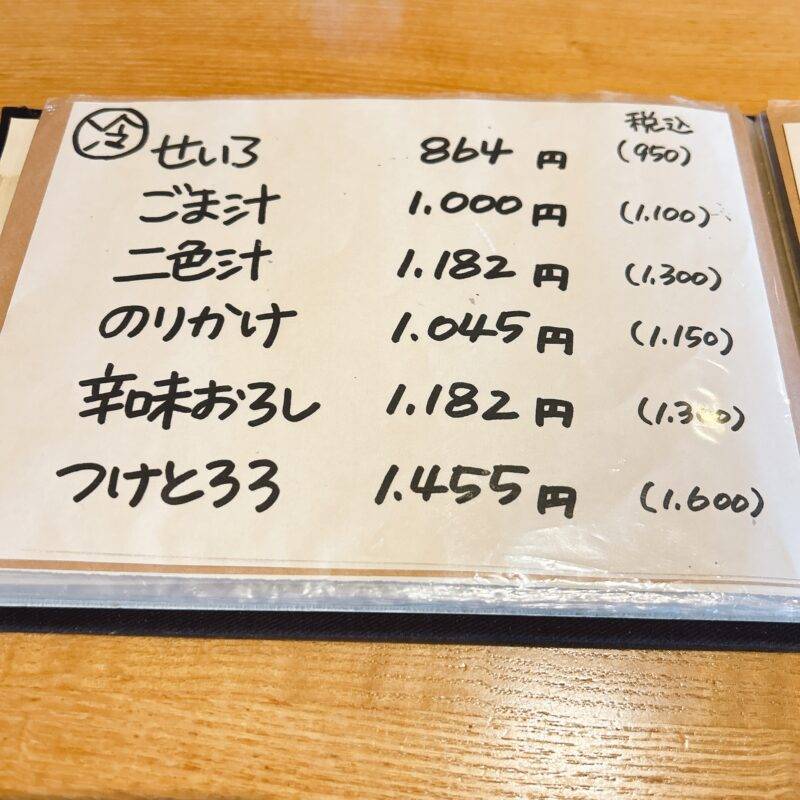 税込
冷 せいろ 864円 (950)
ごま汁 1.000円 (1.100)
二色汁 1.182円 (1.300)
のりかけ 1.045円 (1.150)
辛味おろし 1.182円 (1.300)
つけとろろ 1.455円 (1.600)